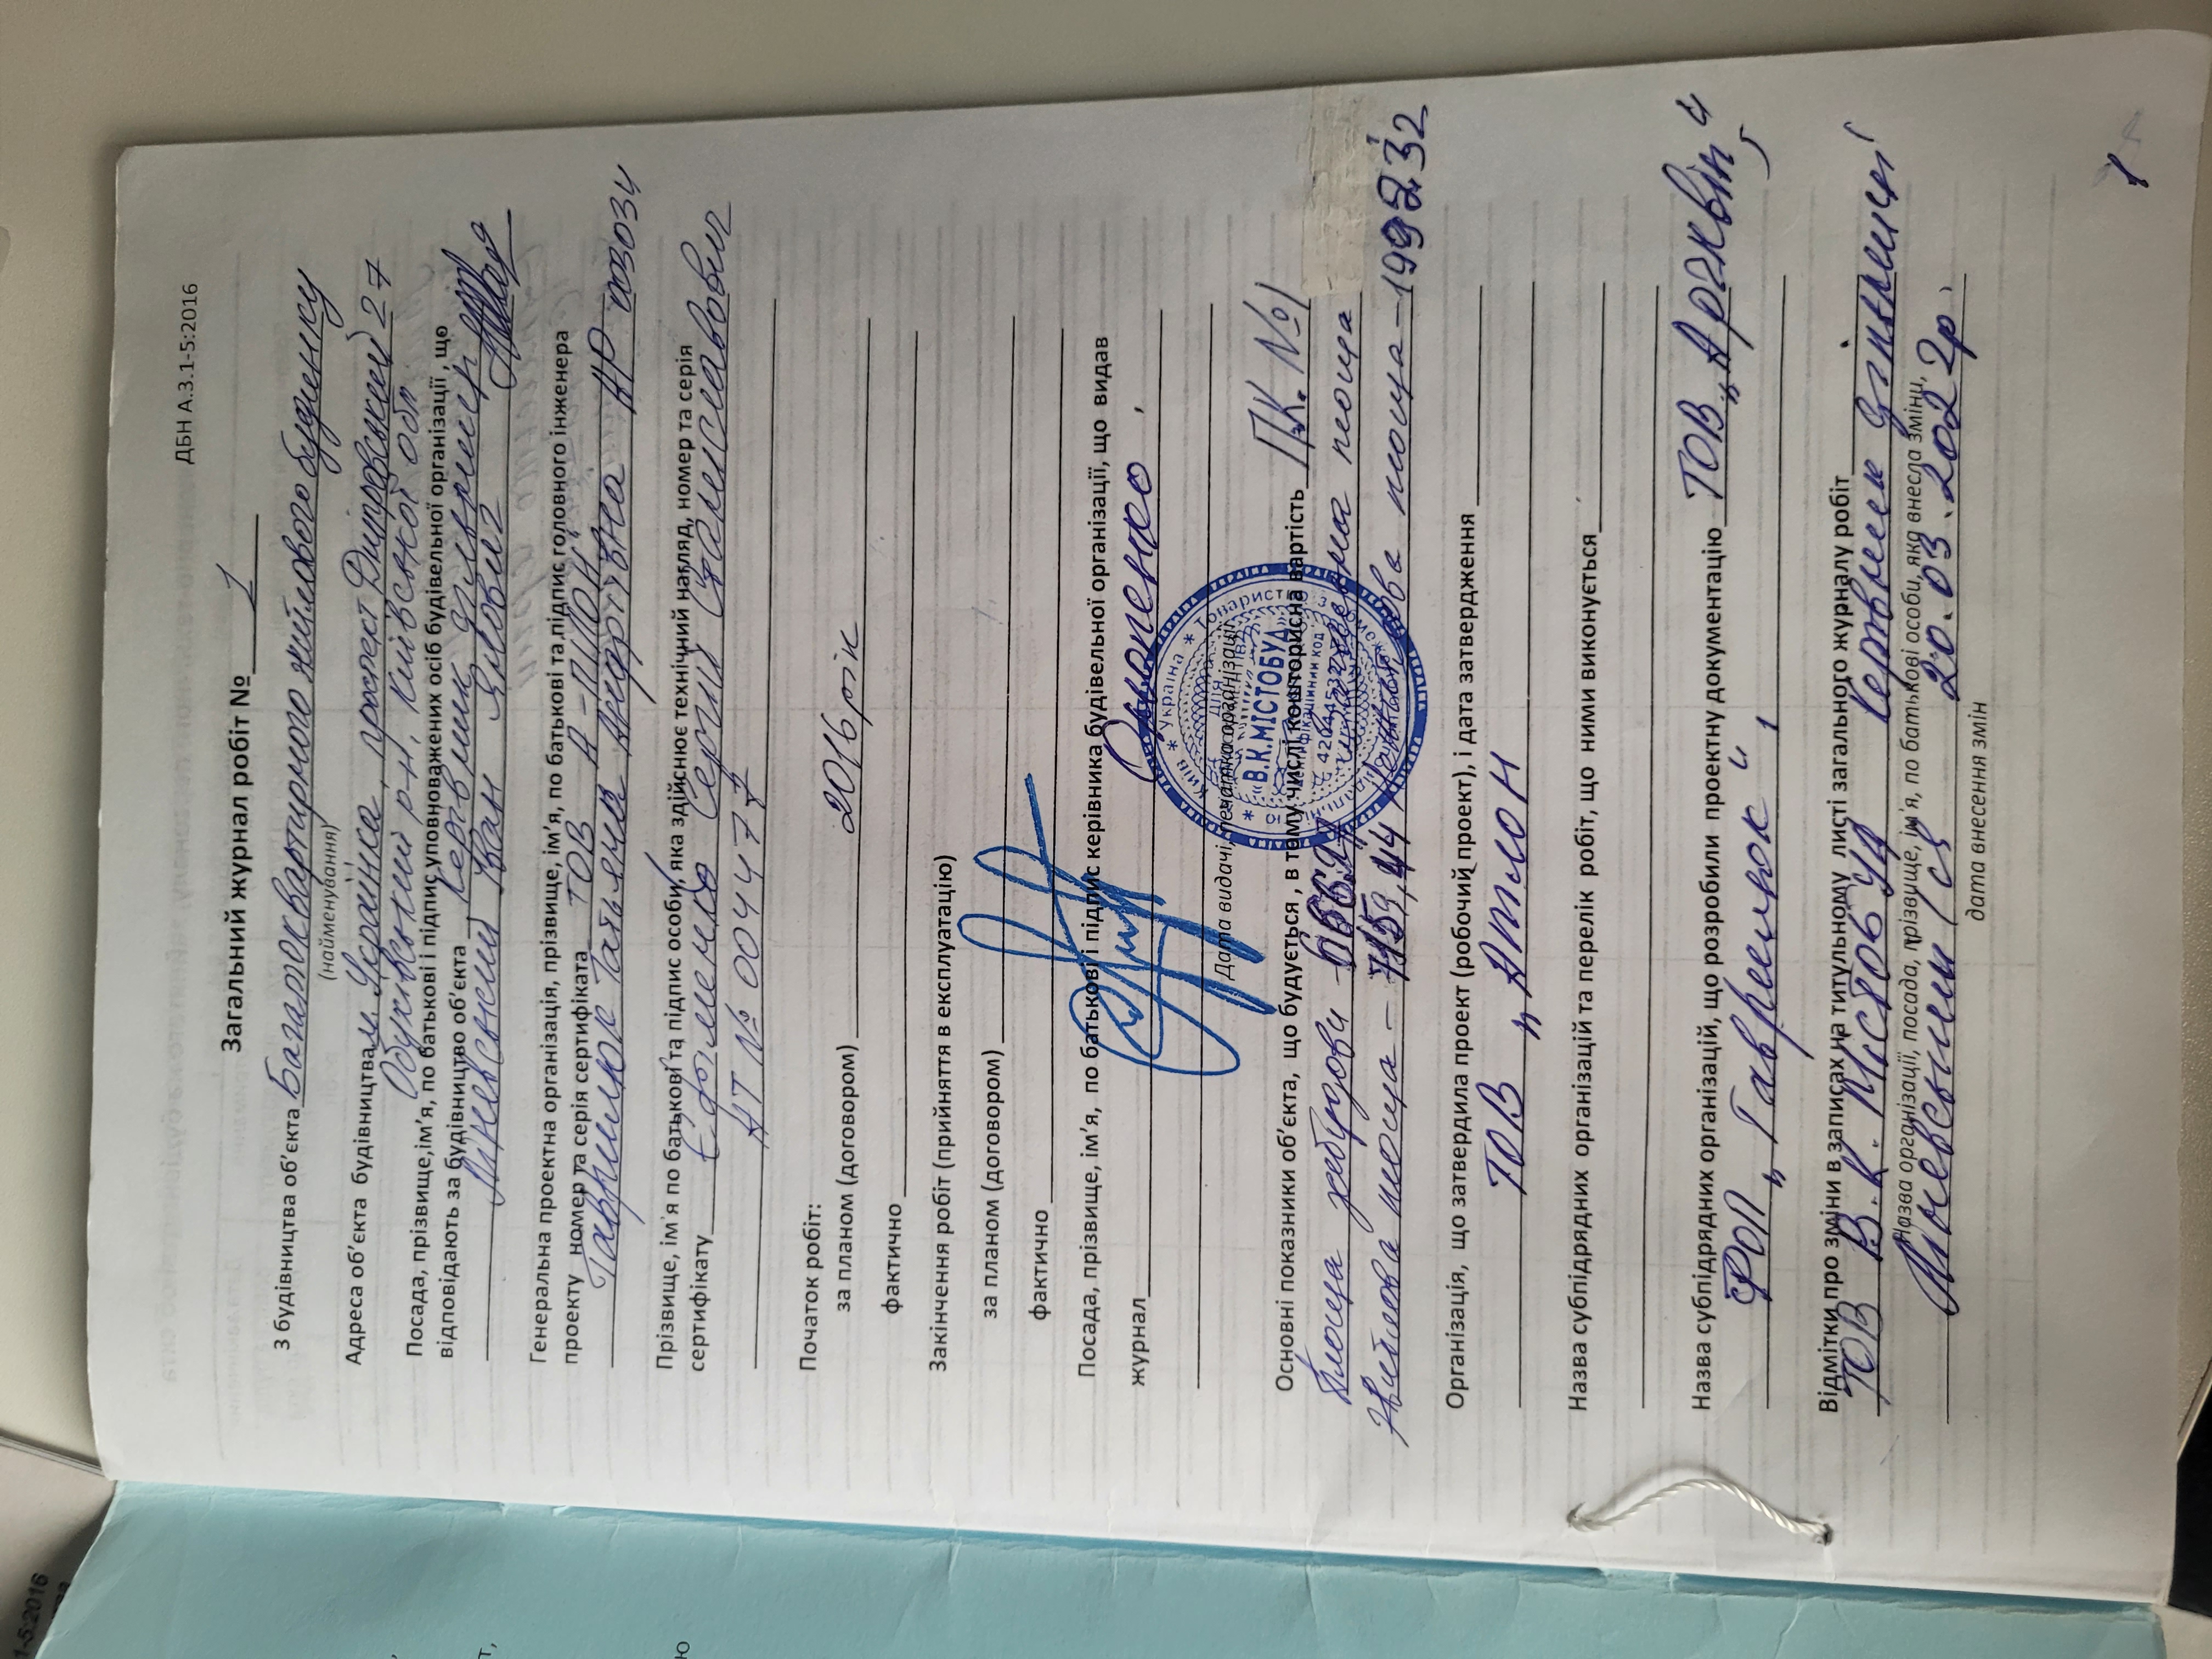 ДБН А.3.1-5:2016
Загальний журнал робіт № 1
З будівництва об’єкта Багатоквартирного житлового будинку
(найменування)
Адреса об’єкта будівництва м. Українка, проспект Дніпровський 27
Обухівський р-н, Київської обл
Посада, прізвище,ім’я, по батькові і підпис уповноважених осіб будівельної організації, що
відповідають за будівництво об’єкта Керівник дільниці
Іван
Генеральна проектна організація, прізвище, ім’я, по батькові та підпис головного інженера
проекту номер та серія сертифіката ТОВ
Гаврилюк Татьяна АР
Прізвище, ім’я по батькові та підпис особи, яка здійснює технічний нагляд, номер та серія
сертифікату Єфименко Сергій Станиславович
АТ № 004477
Початок робіт:
за планом (договором) 2016 рік
фактично
Закінчення робіт (прийняття в експлуатацію)
за планом (договором)
фактично
Посада, прізвище, ім’я, по батькові і підпис керівника будівельної організації, що видав
журнал
Дата видачі, печатка організації
Україна * Товариство з
«В.К.МІСТОБУД»
Ідентифікаційний код
Основні показники об’єкта, що будується , в тому числі кошторисна вартість П.К. №1
Площа забудови площа
Житлова площа – площа –
Організація, що затвердила проект (робочий проект), і дата затвердження
ТОВ „Атлон
Назва субпідрядних організацій та перелік робіт, що ними виконується
Назва субпідрядних організацій, що розробили проектну документацію ТОВ
ФОП „Гаврилюк“,
Відмітки про зміни в записах на титульному листі загального журналу робіт
ТОВ В.К. Містобуд Керівник дільниці
Назва організації, посада, прізвище, ім’я, по батькові особи, яка внесла зміни,
20.03.2022р.
дата внесення змін
1
1-5:2016